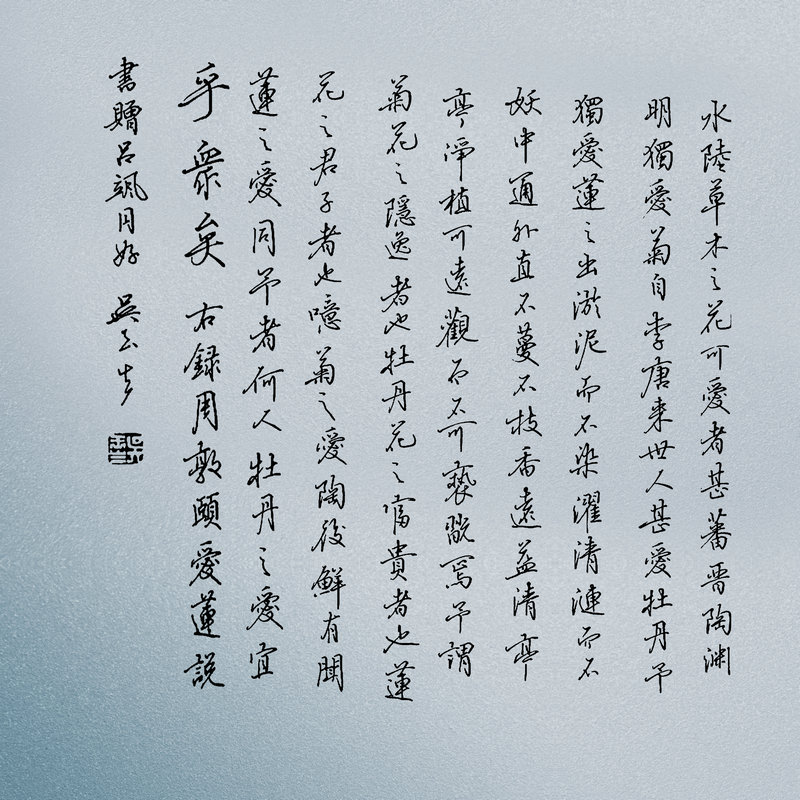 水陸草木之花可愛者甚蕃晉陶渊
明獨愛菊自李唐来世人甚愛牡丹予
獨愛蓮之出淤泥而不染濯清漣而不
妖中通外直不蔓不枝香遠益清亭
亭淨植可遠觀而不可褻翫焉予謂
菊花之隱逸者也牡丹花之富貴者也蓮
花之君子者也噫菊之愛陶後鮮有聞
蓮之愛同予者何人牡丹之愛宜
乎衆矣右録周敦頤愛蓮説
書贈呂颯同好 吳玉生